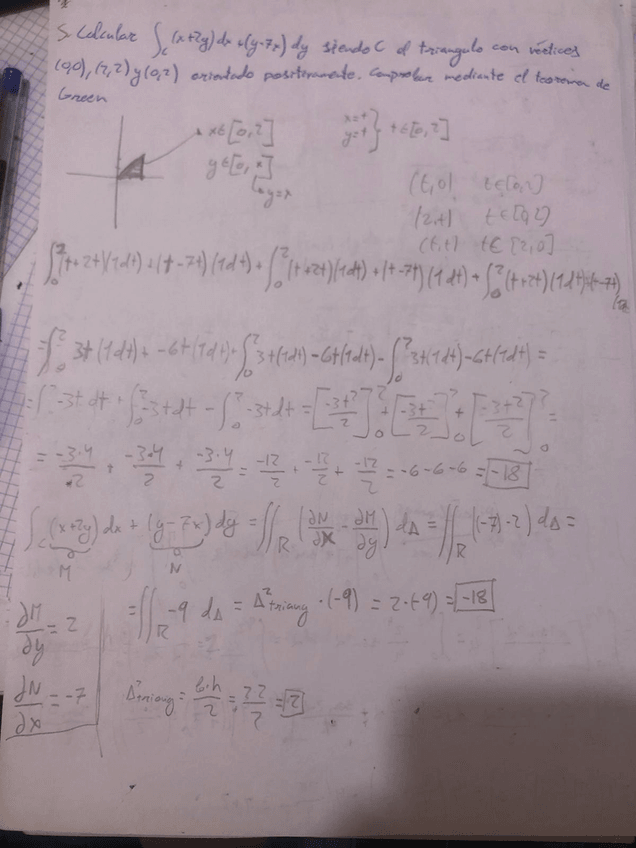 5. Calcular ∫_C (x+2y) dx + (y-7x) dy siendo C el triangulo con vertices
(0,0), (2,2) y (0,2) orientado positivamente. Comprobar mediante el teorema de
Green
x∈[0,2]
y∈[0,x]
y=x
x=t
y=t } t∈[0,2]
(t,0) t∈[0,2]
(2,t) t∈[0,2]
(t,t) t∈[2,0]
∫₀² (t+2t)(1dt)+(t-7t)(1dt)+∫₀² (t+2t)(1dt)+(t-7t)(1dt)+∫₀² (t+2t)(1dt)+(t-7t)
=∫₀² 3t(1dt)+-6t(1dt)+∫₀² 3t(1dt)-6t(1dt)-∫₀² 3t(1dt)-6t(1dt)=
=∫-3t dt+∫₀²-3t dt-∫₀²-3t dt=[-3t²/2]₀²+[-3t²/2]₀²+[-3t²/2]₀²=
= -3·4/2 + -3·4/2 + -3·4/2 = -12/2 + -12/2 + -12/2 = -6-6-6 = -18
∫_C (x+2y) dx + (y-7x) dy = ∬_R (∂N/∂x - ∂M/∂y) dA = ∬_R (-7)-2) dA =
M N
∂M/∂y = 2
= ∬_R -9 dA = A²triang · (-9) = 2·(-9) = -18
∂N/∂x = -7
A²triang = b·h/2 = 2·2/2 = 2